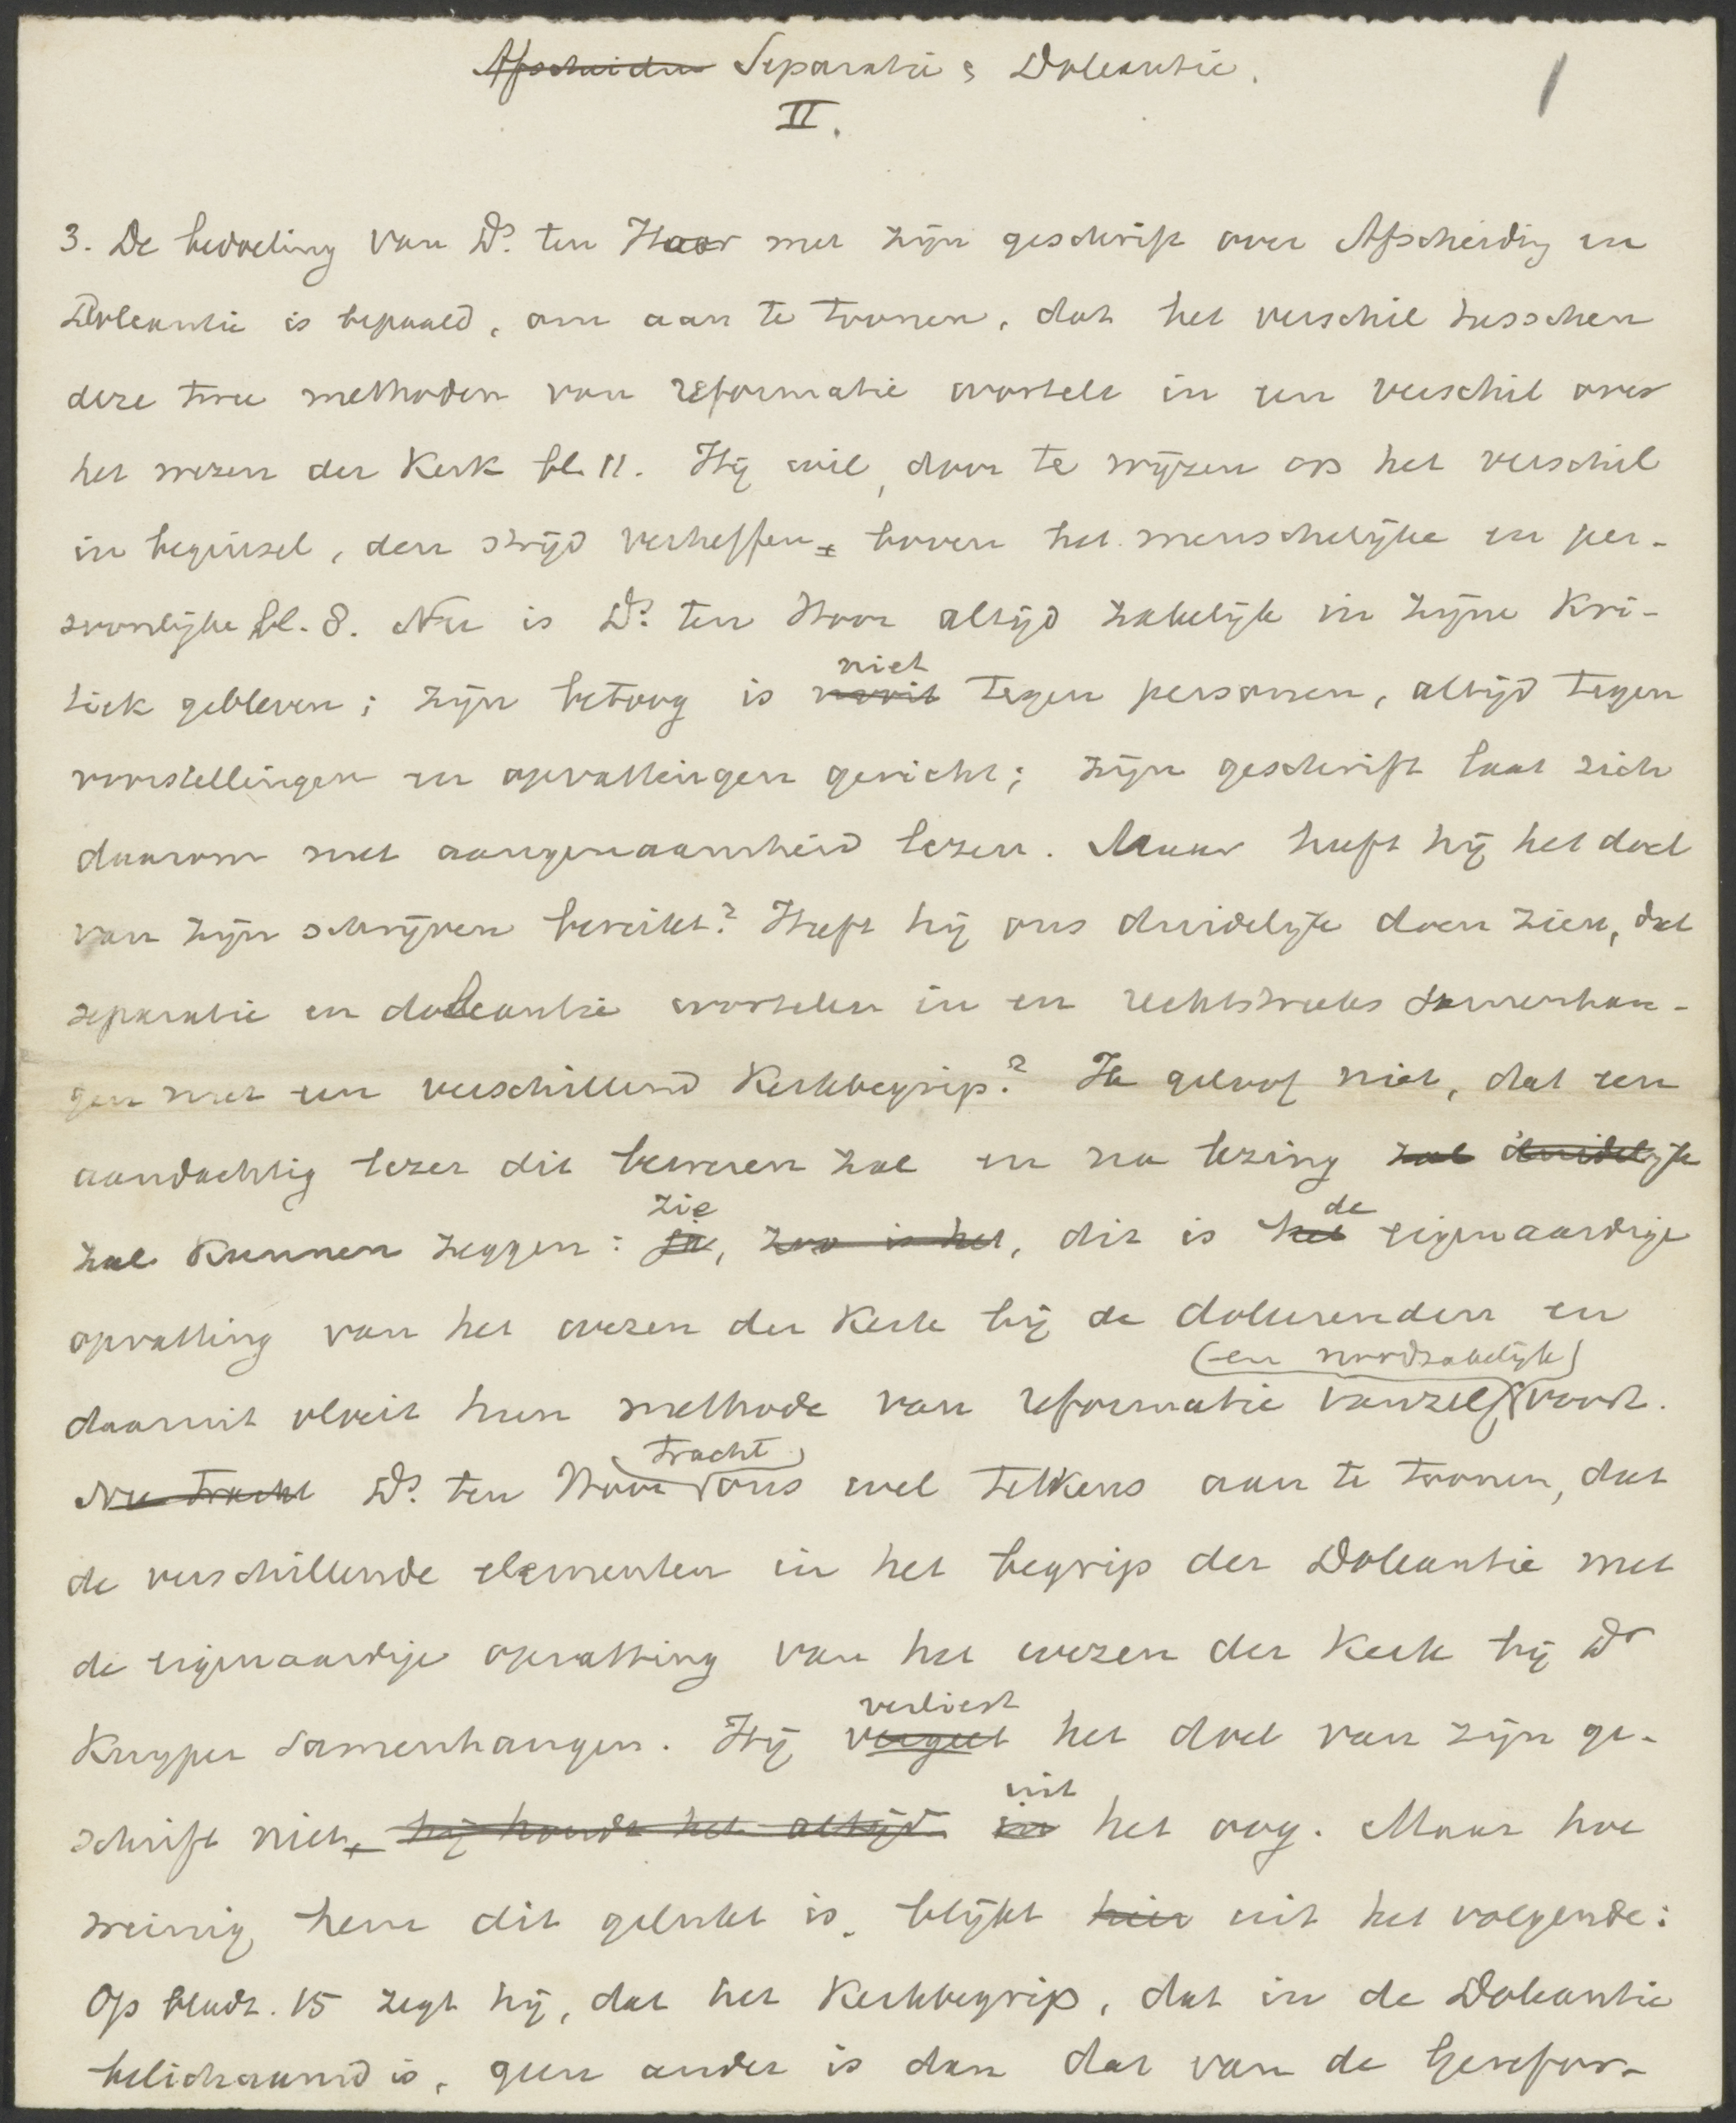 ~~Afscheiden~~ Separatie & Doleantie.
1
II.
3. De bedoeling van Ds. ten Hoor met zijn geschrift over Afscheiding en
Doleantie is bepaald, om aan te toonen, dat het verschil tusschen
deze twee methoden van reformatie wortelt in een verschil over
het wezen der Kerk bl. 11. Hij wil, door te wijzen op het verschil
in beginsel, den strijd verheffen boven het menschelijke en per-
soonlijke bl. 8. Nu is Ds. ten Hoor altijd zakelijk in zijne Kri-
niet
tiek gebleven; zijn betoog is ~~nooit~~ tegen personen, altijd tegen
voorstellingen en opvattingen gericht; zijn geschrift laat zich
daarom met aangenaamheid lezen. Maar heeft hij het doel
van zijn schrijven bereikt? Heeft hij ons duidelijk doen zien, dat
separatie en doleantie wortelen in en rechtstreeks samenhan-
gen met een verschillend Kerkbegrip? Ik geloof niet, dat een
aandachtig lezer dit beweren zal en na lezing ~~zal~~ ~~duidelijk~~
zie de
zal kunnen zeggen: ~~ja~~, ~~zoo is het~~, dit is ~~het~~ eigenaardige
opvatting van het wezen der Kerk bij de doleerenden en
(en noodzakelijk)
daaruit vloeit hun methode van reformatie vanzelf voort.
tracht
~~Nu tracht~~ Ds. ten Hoor ons wel telkens aan te toonen, dat
de verschillende elementen in het begrip der Doleantie met
de eigenaardige opvatting van het wezen der Kerk bij Dr
verliest
Kuyper samenhangen. Hij ~~vergeet~~ het doel van zijn ge-
uit
schrift niet, ~~hij houdt het altijd~~ ~~in~~ het oog. Maar hoe
weinig hem dit gelukt is, blijkt ~~hier~~ uit het volgende:
Op bladz. 15 zegt hij, dat het Kerkbegrip, dat in de Doleantie
belichaamd is, geen ander is dan dat van de Gerefor-